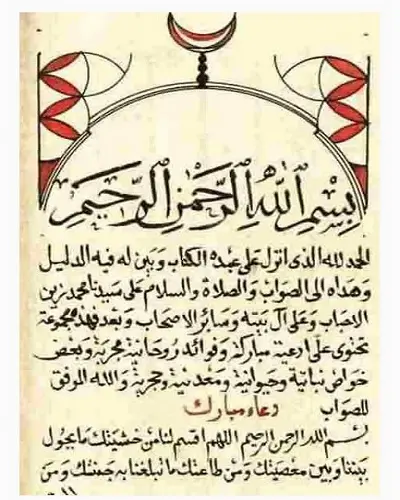 بسم الله الرحمن الرحيم
الحمد لله الذى انزل على عبده الكتاب وبين له فيه الدليل
وهداه الى الصواب والصلاة والسلام على سيدنا محمد زين
الانجاب وعلى آل بيته وسائر الاصحاب وبعد فهذه مجموعة
تحتوى على ادعية مباركة وفوائد روحانية مجربة وبعض
خواص نباتية وحيوانية ومعدنية ومجربة والله الموفق
للصواب دعاء مبارك
بسم الله الرحمن الرحيم اللهم اقسم لنا من خشيتك ما يحول
بيننا وبين معصيتك ومن طاعتك ما تبلغنا به جنتك ومن